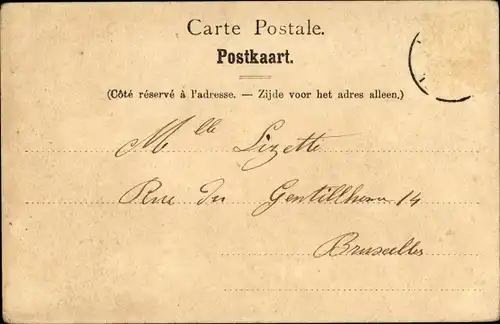 Carte Postale.
Postkaart.
(Côté réservé à l'adresse. — Zijde voor het adres alleen.)
Mlle Lizette
Rue du Gentillhome 14
Bruxelles